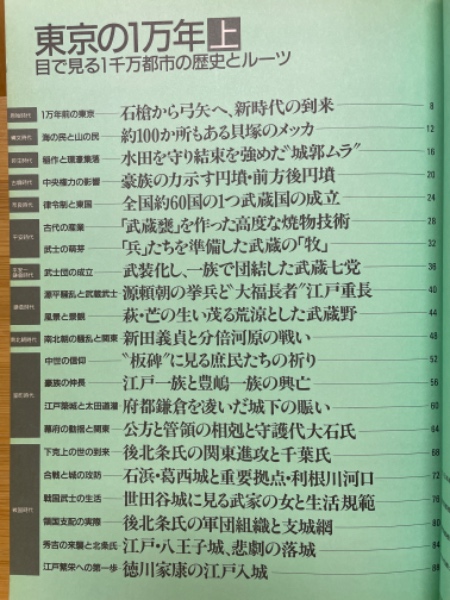 東京の1万年 上
目で見る1千万都市の歴史とルーツ
1万年前の東京 石槍から弓矢へ、新時代の到来 8
縄文時代 海の民と山の民 約100か所もある貝塚のメッカ 12
弥生時代 稲作と環濠集落 水田を守り結束を強めた“城郭ムラ” 16
古墳時代 中央権力の影響 豪族の力示す円墳・前方後円墳 20
奈良時代 律令制と東国 全国約60国の1つ武蔵国の成立 24
平安時代 古代の産業 「武蔵甕」を作った高度な焼物技術 28
武士の萌芽 「兵」たちを準備した武蔵の「牧」 32
武士団の成立 武装化し、一族で団結した武蔵七党 36
鎌倉時代 源平騒乱と武蔵武士 源頼朝の挙兵と“大福長者”江戸重長 40
風景と景観 萩・芒の生い茂る荒涼とした武蔵野 44
南北朝時代 南北朝の騒乱と関東 新田義貞と分倍河原の戦い 48
室町時代 中世の信仰 “板碑”に見る庶民たちの祈り 52
豪族の伸長 江戸一族と豊嶋一族の興亡 56
江戸築城と太田道灌 府都鎌倉を凌いだ城下の賑い 60
幕府の動揺と関東 公方と管領の相剋と守護代大石氏 64
戦国時代 下克上の世の到来 後北条氏の関東進攻と千葉氏 68
合戦と城の攻防 石浜・葛西城と重要拠点・利根川河口 72
戦国武士の生活 世田谷城に見る武家の女と生活規範 76
領国支配の実際 後北条氏の軍団組織と支城網 80
秀吉の来襲と北条氏 江戸・八王子城、悲劇の落城 84
江戸繁栄への第一歩 徳川家康の江戸入城 88